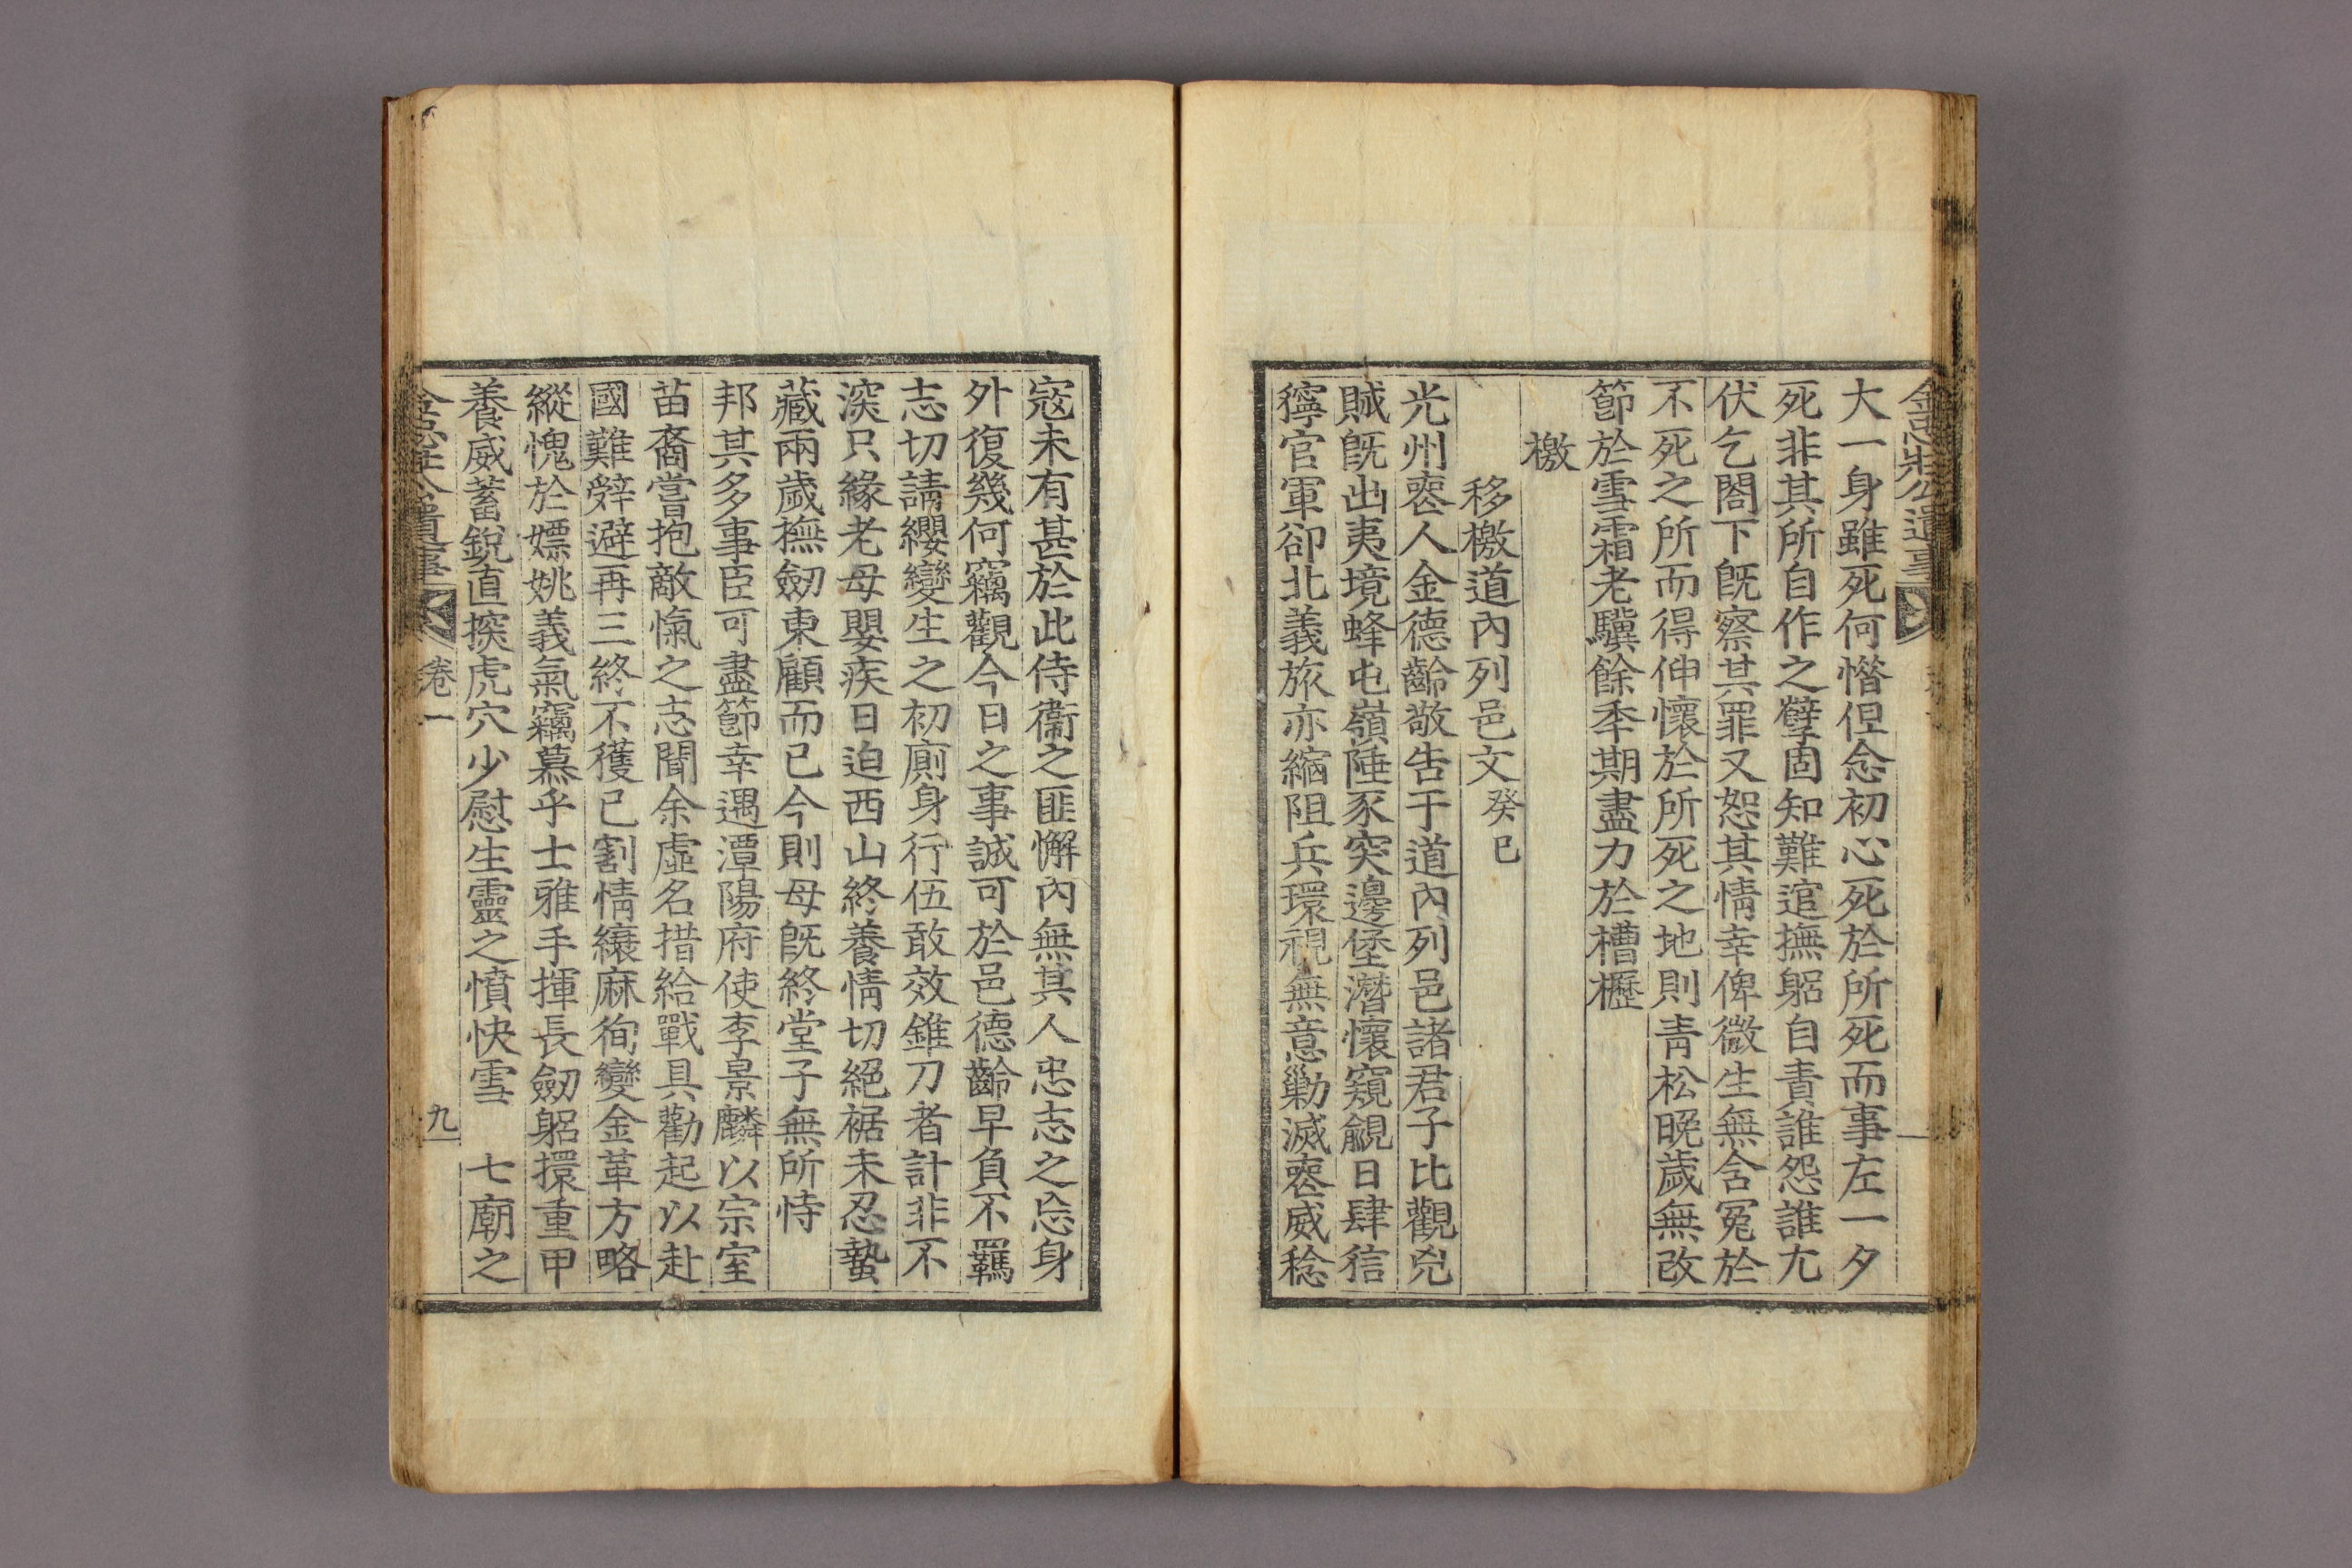 金忠壯公遺事
大一身雖死何惜但念初心死於所死而事左一夕
死非其所自作之孽固知難逭撫躬自責誰怨誰尤
伏乞閤下旣察其罪又恕其情幸俾微生無含冤於
不死之所而得伸懷於所死之地則靑松晩歲無改
節於雪霜老驥餘年期盡力於槽櫪
檄
移檄道內列邑文 癸巳
光州喪人金德齡敬告于道內列邑諸君子比觀兇
賊旣出夷境蜂屯嶺陲豕突邊堡潛懷窺覦日肆猖
獰官軍卻北義旅亦縮阻兵環視無意勦滅喪威稔
寇未有甚於此侍衞之匪懈內無其人忠志之忘身
外復幾何竊觀今日之事誠可於邑德齡早負不羈
志切請纓變生之初廁身行伍敢效錐刀者計非不
深只緣老母嬰疾日迫西山終養情切絕裾未忍蟄
藏兩歲撫劒東顧而已今則母旣終堂子無所恃
邦其多事臣可盡節幸遇潭陽府使李景麟以宗室
苗裔嘗抱敵愾之志聞余虛名措給戰具勸起以赴
國難辤避再三終不獲已割情縗麻徇變金革方略
縱愧於嫖姚義氣竊慕乎士雅手揮長劒躬擐重甲
養威蓄銳直探虎穴少慰生靈之憤快雪 七廟之
金忠壯公遺事 卷一 九